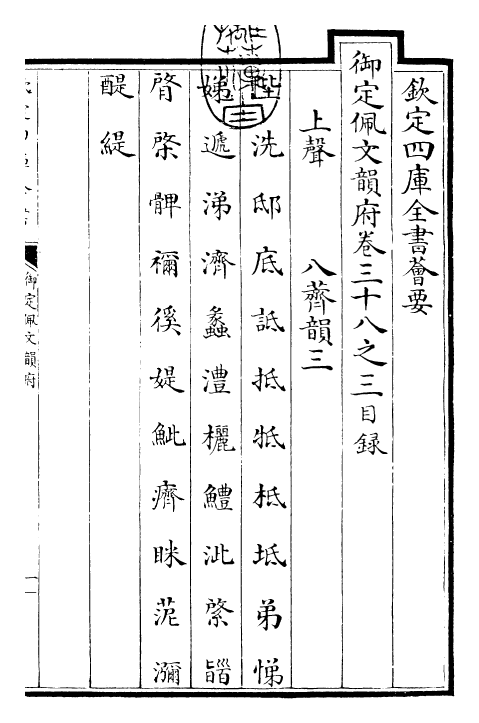 欽定四庫全書薈要
御定佩文韻府卷三十八之三目録
上聲 八薺韻三
陛洗邸底詆抵牴柢坻弟悌
娣遞涕濟蠡澧欐鱧泚綮
棨髀禰徯媞鮆癠眯苨瀰
醍緹
御定佩文韻府